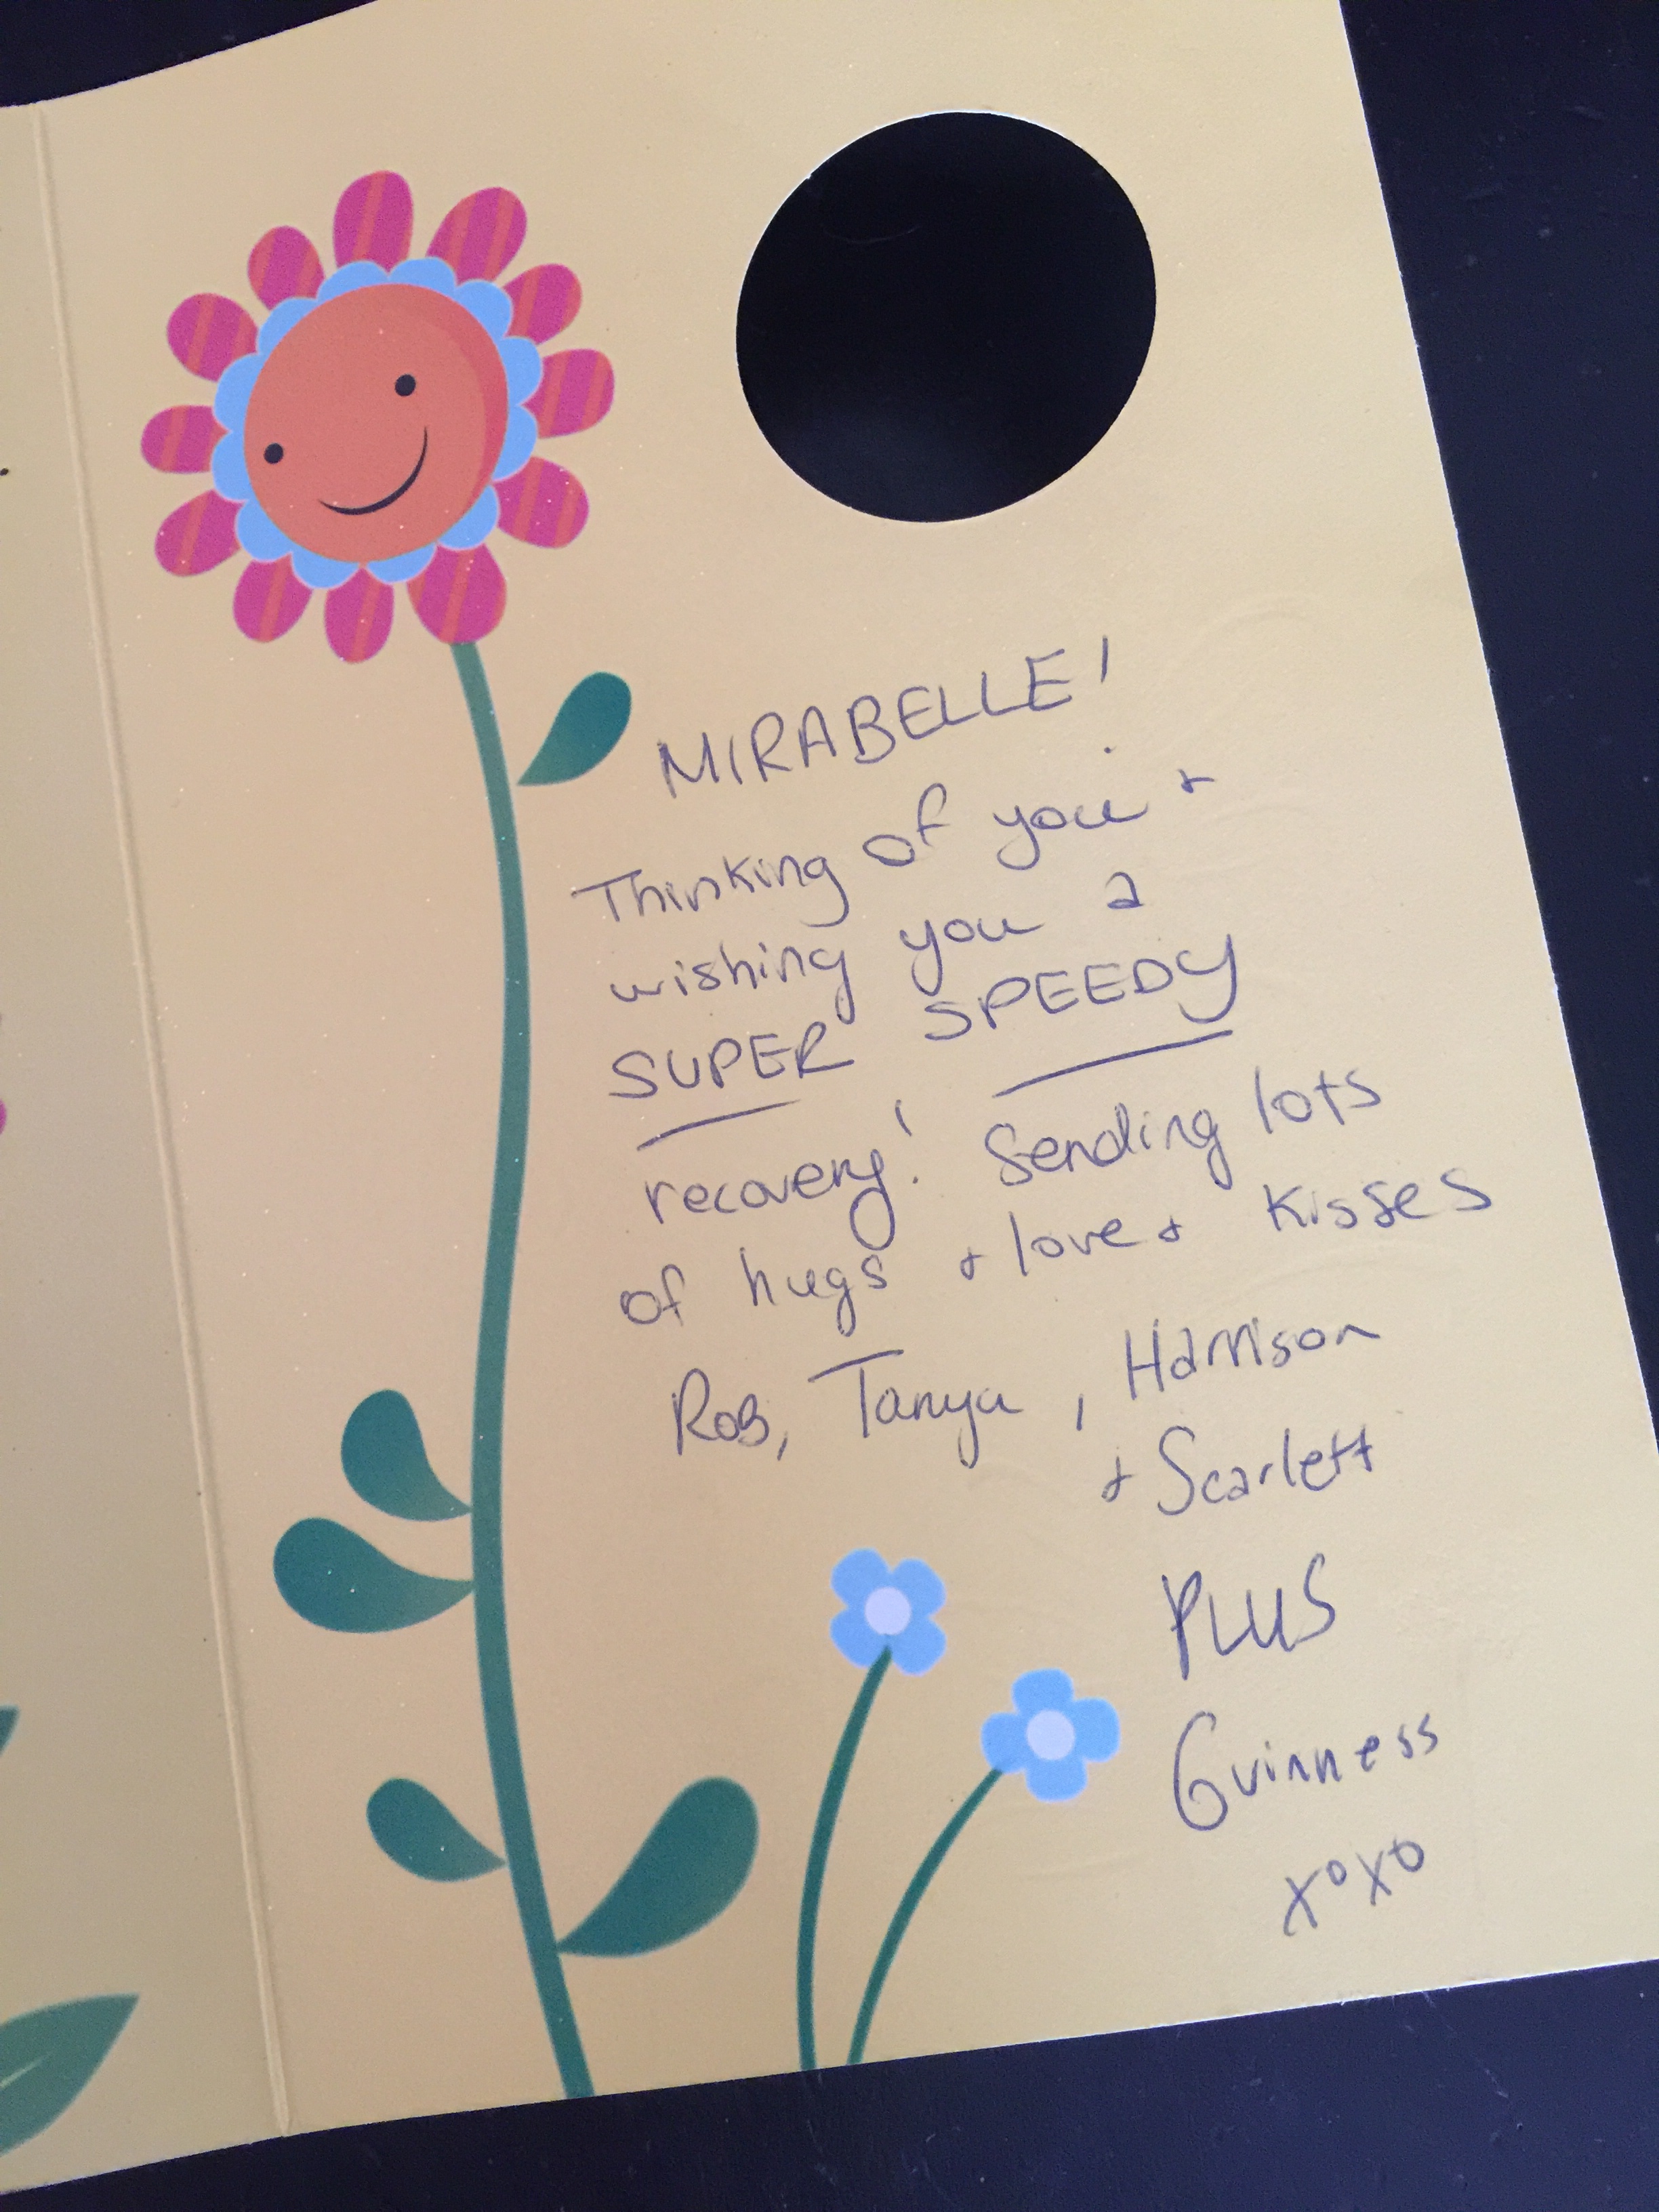 MIRABELLE!
Thinking of you +
wishing you a
SUPER SPEEDY
recovery! Sending lots
of hugs + love + kisses
Rob, Tanya, Harrison
+ Scarlett
PLUS
Guinness
xoxo